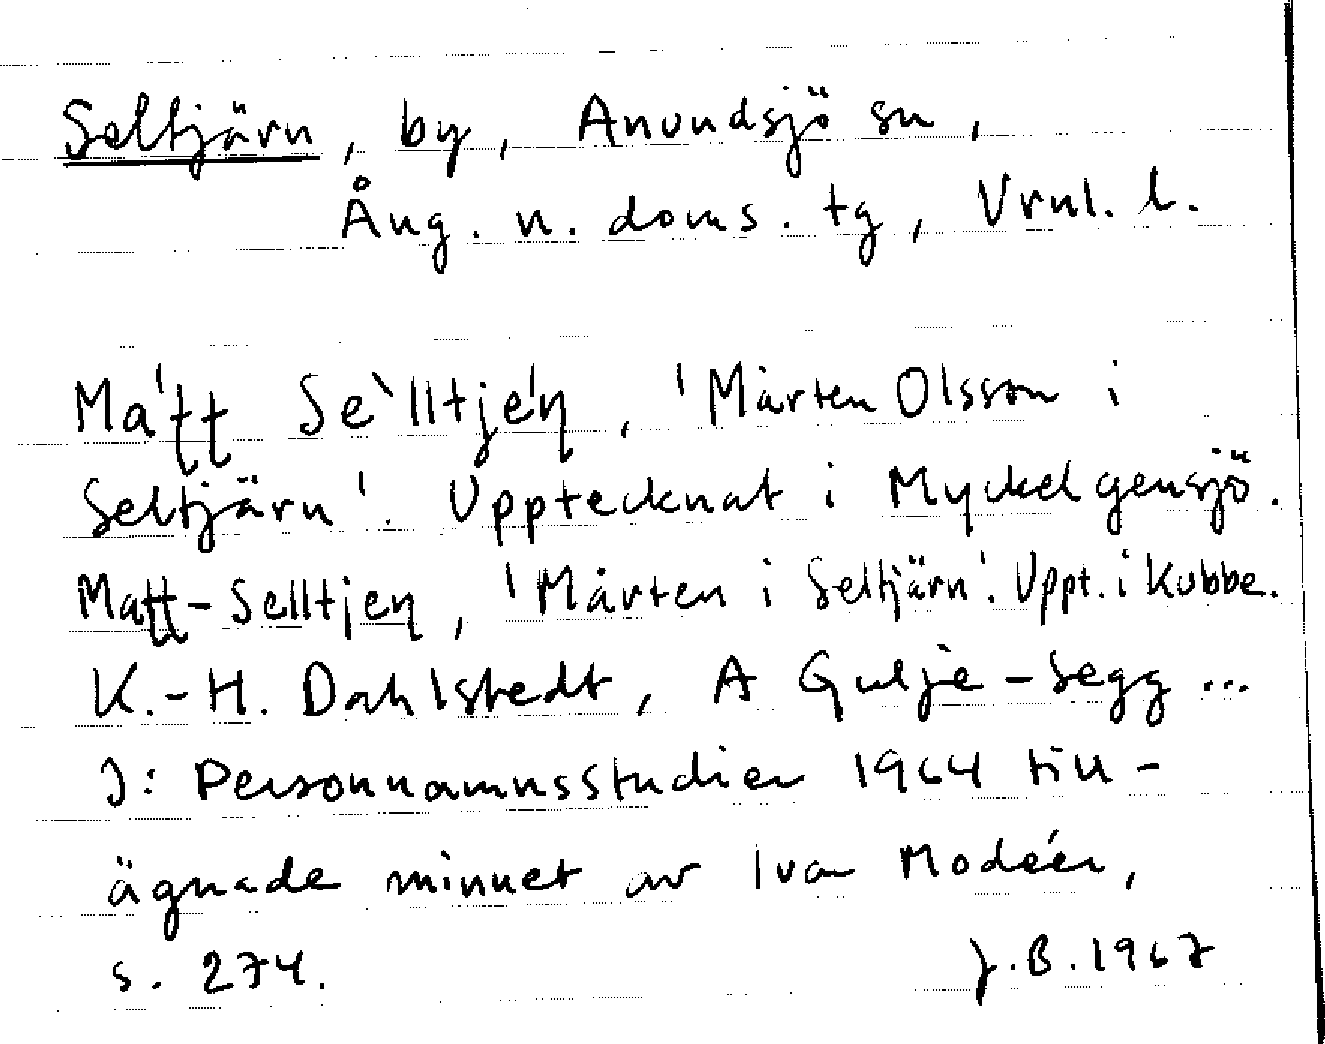 Seltjärn, by, Anundsjö sn,
Ång. n. doms. tg, Vrnl. l.
Ma'ʈʈ Se`lltje'ɳ, 'Mårten Olsson i
Seltjärn'. Upptecknat i Myckelgensjö.
Maʈʈ-Selltjeɳ, 'Mårten i Seltjärn'. Uppt. i Kubbe.
K.-H. Dahlstedt, A Gulje-Segg ...
I: Personnamnsstudier 1964 till-
ägnade minnet av Ivar Modéer,
s. 274. J.B. 1967